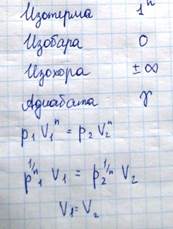 Изотерма 1ⁿ
Изобара 0
Изохора ±∞
Адиабата γ
p₁ V₁ⁿ = p₂ V₂ⁿ
p₁^{1/n} V₁ = p₂^{1/n} V₂
V₁ = V₂